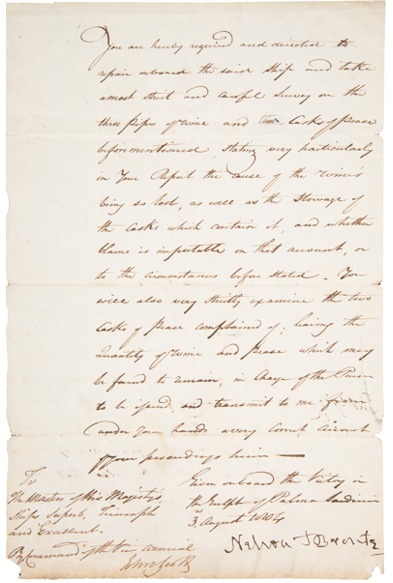 You are hereby required and directed to
repair onboard the said Ship and take
a most strict and careful Survey on the
three Pipes of Wine and Casks of Pease
beforementioned, stating very particularly
in Your Report the cause of the Wine's
being so lost, as well as the Stowage of
the Casks which contain it, and whether
blame is imputable on that account, or
to the circumstances before stated. You
will also very strictly examine the two
Casks of Pease complained of; leaving the
Quantity of Wine and Pease which may
be found to remain, in Charge of the Purser
to be issued, and transmit to me
under Your hands a very Correct Account
of Your proceedings herein —
Given onboard the Victory in
the Gulph of Palma Sardinia
3d August 1804
Nelson & Bronte
To
The Masters of His Majesty's
Ships Superb, Triumph
and Excellent.
By Command of the Vice Admiral
John Scott